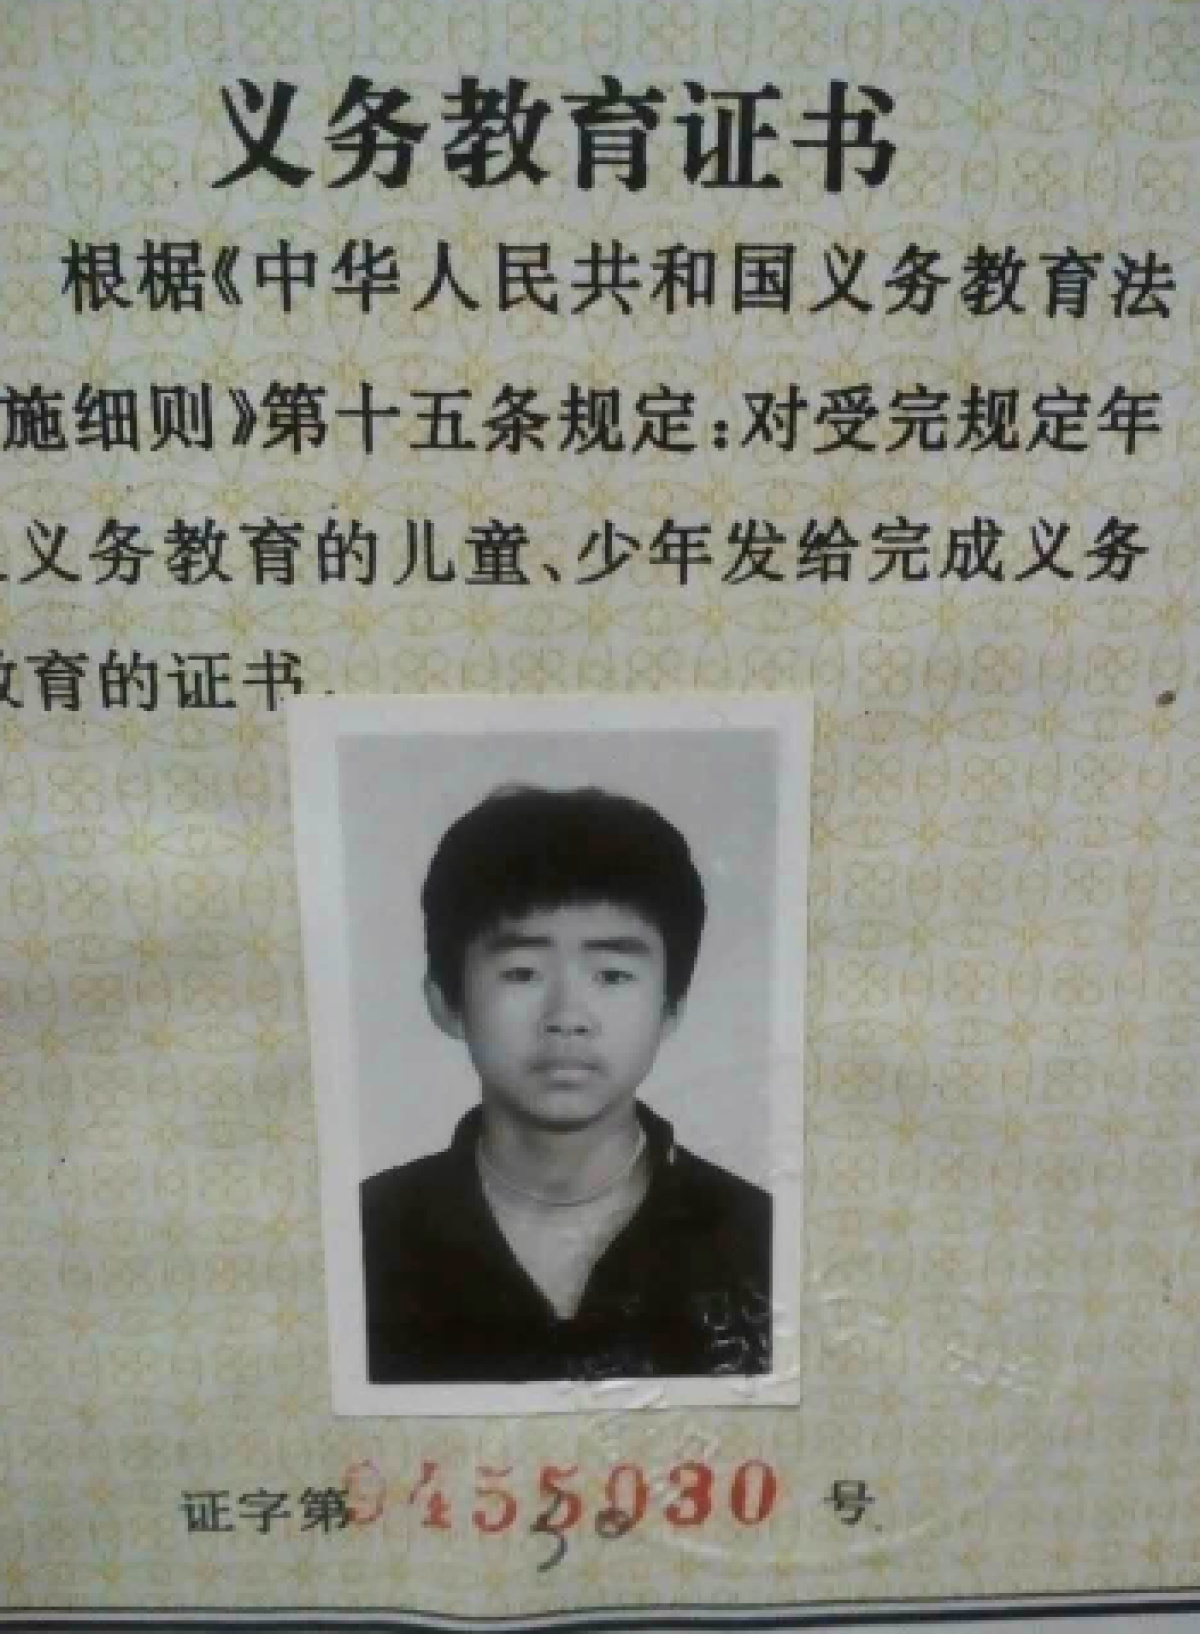 义务教育证书
根椐《中华人民共和国义务教育法
施细则》第十五条规定：对受完规定年
义务教育的儿童、少年发给完成义务
教育的证书.
证字第9455030号